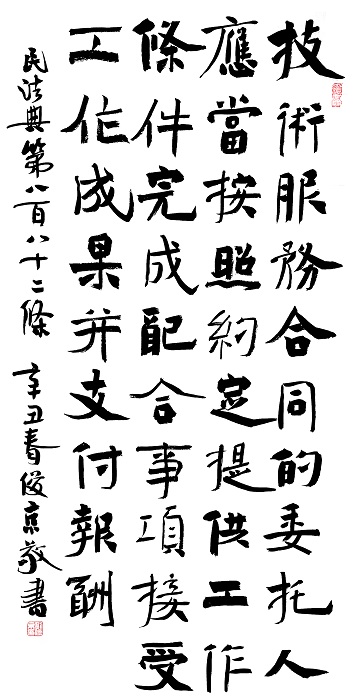 技術服務合同的委托人
應當按照約定提供工作
條件完成配合事項接受
工作成果并支付報酬
民法典第八百八十二條 辛丑春俊京敬書